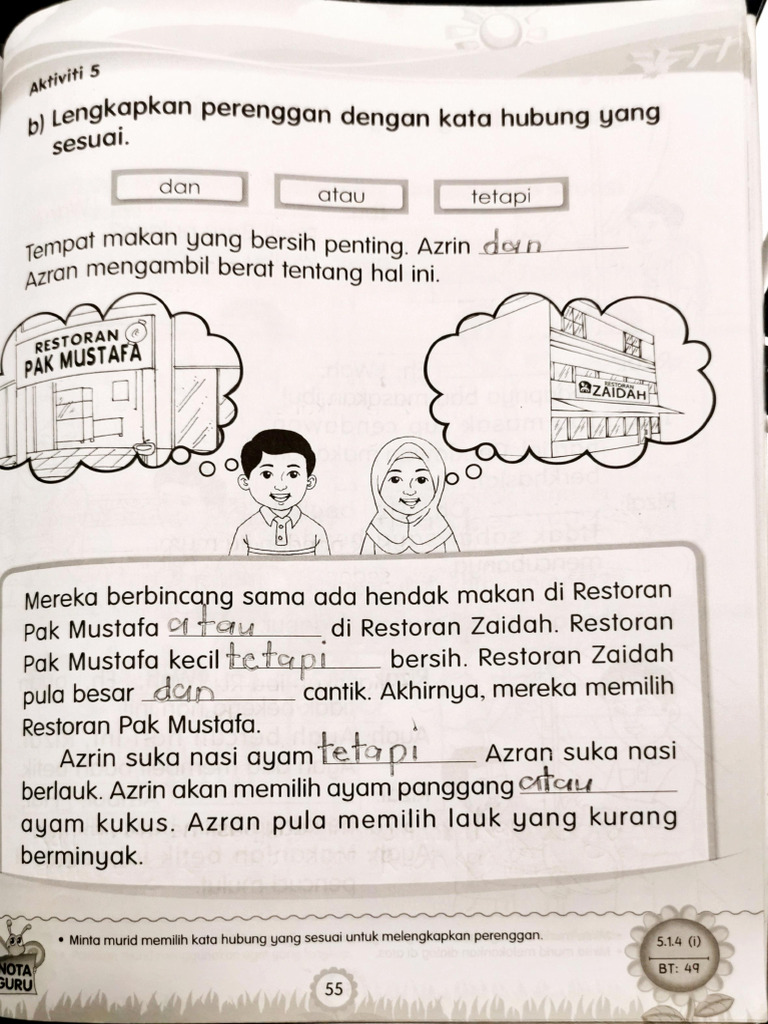 Aktiviti 5
b) Lengkapkan perenggan dengan kata hubung yang
sesuai.
dan atau tetapi
Tempat makan yang bersih penting. Azrin dan
Azran mengambil berat tentang hal ini.
RESTORAN
PAK MUSTAFA
RESTORAN
ZAIDAH
Mereka berbincang sama ada hendak makan di Restoran
Pak Mustafa atau di Restoran Zaidah. Restoran
Pak Mustafa kecil tetapi bersih. Restoran Zaidah
pula besar dan cantik. Akhirnya, mereka memilih
Restoran Pak Mustafa.
Azrin suka nasi ayam tetapi Azran suka nasi
berlauk. Azrin akan memilih ayam panggang atau
ayam kukus. Azran pula memilih lauk yang kurang
berminyak.
NOTA
GURU
• Minta murid memilih kata hubung yang sesuai untuk melengkapkan perenggan.
5.1.4 (i)
BT: 49
55